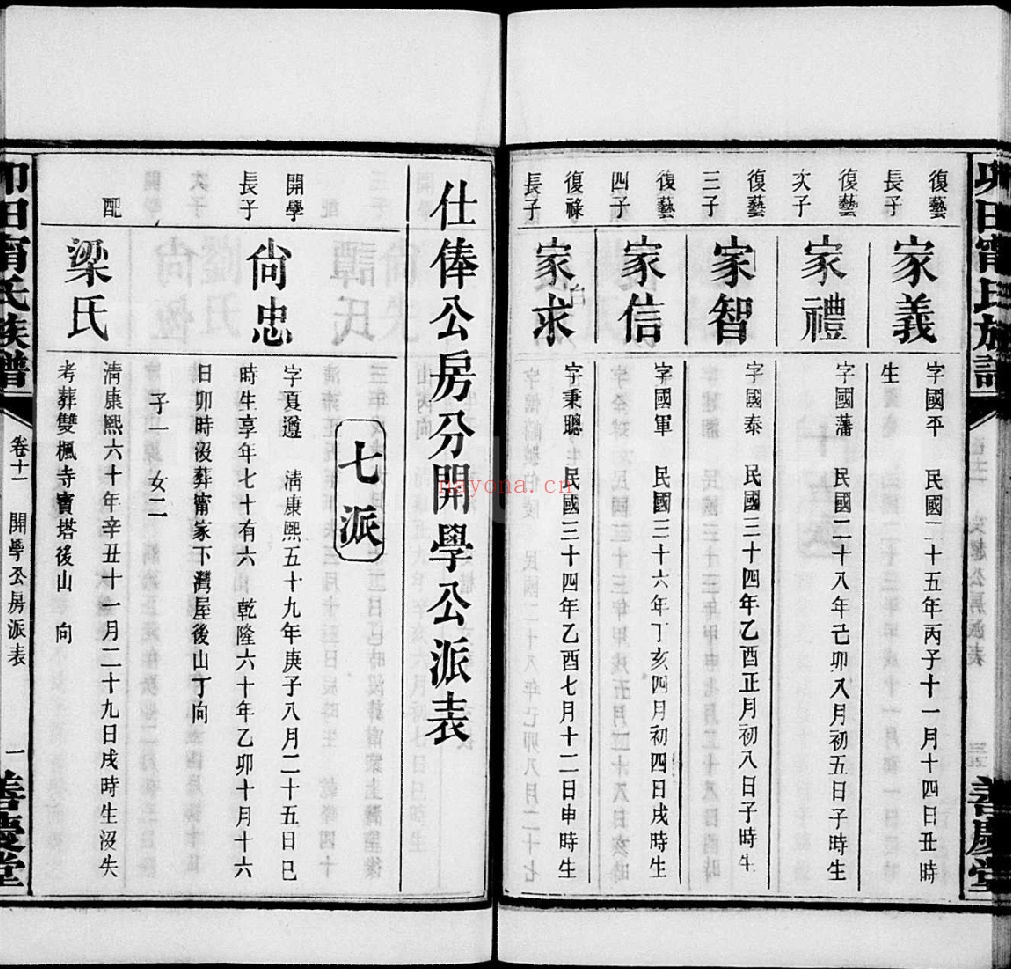 甯氏族譜
善慶堂
復藝
長子
家義
字國平 民國二十五年丙子十一月十四日丑時
生
復藝
次子
家禮
字國藩 民國二十八年己卯八月初五日子時生
復藝
三子
家智
字國泰 民國三十四年乙酉正月初八日子時生
復藝
四子
家信
字國軍 民國三十六年丁亥四月初四日戌時生
復祿
長子
家求
字秉聰 民國三十四年乙酉七月十二日申時生
仕俸公房分開學公派表
七派
開學
長子
尙忠
字夏遵 清康熙五十九年庚子八月二十五日巳
時生享年七十有六 乾隆六十年乙卯十月十六
日卯時沒葬甯家下灣屋後山丁向
子一 女二
配
梁氏
清康熙六十年辛丑十一月二十九日戌時生沒失
考葬雙楓寺寶塔後山 向
甯氏族譜
卷十一 開學公房派表
一
善慶堂
nayona.cn